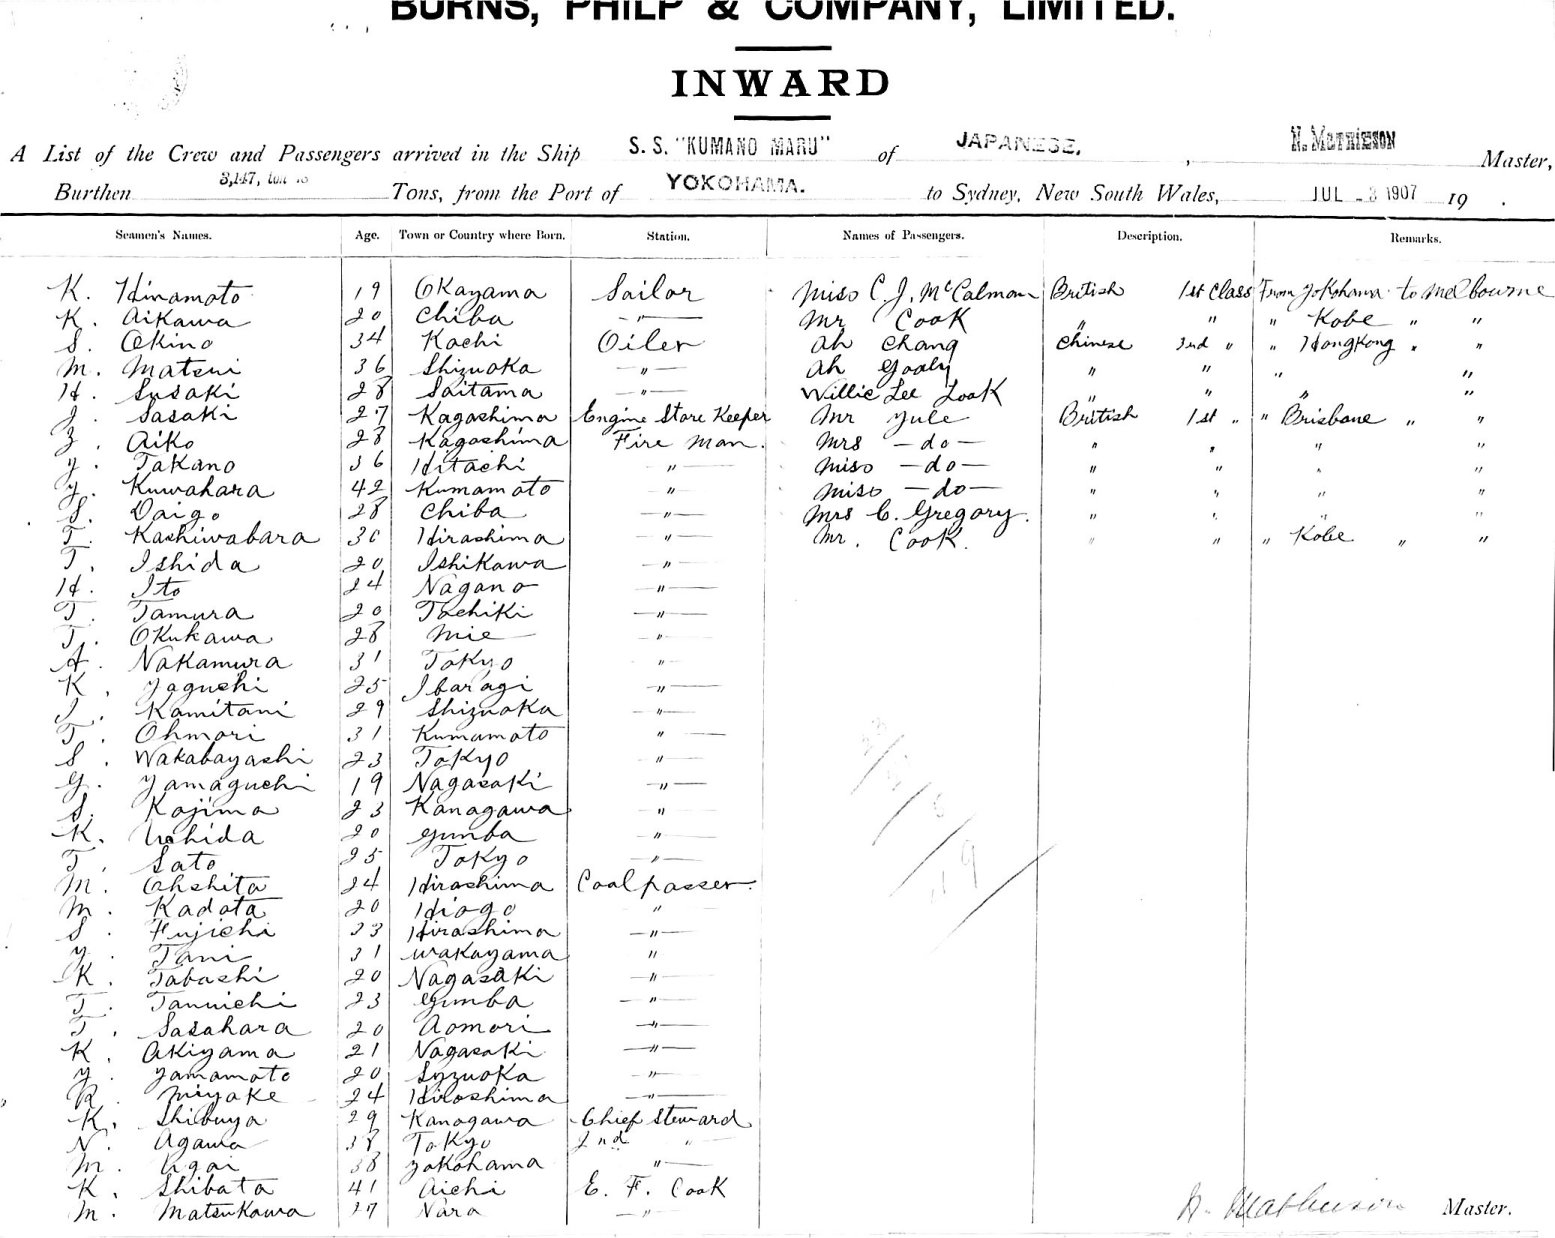 BURNS, PHILP & COMPANY, LIMITED.
INWARD
A List of the Crew and Passengers arrived in the Ship S. S. "KUMANO MARU" of JAPANESE. , N. MATHIESON Master,
Burthen 3,147, Tons, from the Port of YOKOHAMA. to Sydney, New South Wales, JUL - 3 1907 19 .
Seamen's Names. Age. Town or Country where Born. Station. Names of Passengers. Description. Remarks.
K. Hinamoto 19 Okayama Sailor Miss C. J. McCalman British 1st Class From Yokohama to Melbourne
K. Aikawa 20 Chiba —"— Mr Cook " " " Kobe " "
S. Okino 34 Kochi Oiler Ah Chang Chinese 3rd " " HongKong " "
M. Matsui 36 Shizuoka —"— Ah Gooly " " " "
H. Susaki 28 Saitama —"— Willie Lee Look " " " "
J. Sasaki 27 Kagoshima Engine Store Keeper Mr Yule British 1st " " Brisbane " "
Z. Aiko 28 Kagoshima Fire Man. Mrs —do— " " " "
Y. Takano 36 Hitachi —"— Miss —do— " " " "
Y. Kuwahara 42 Kumamoto —"— Miss —do— " " " "
S. Daigo 28 Chiba —"— Mrs C. Gregory. " " " "
T. Kashiwabara 30 Hirashima —"— Mr. Cook. " " " Kobe " "
T. Ishida 20 Ishikawa —"—
H. Ito 24 Nagano —"—
T. Tamura 20 Tochiki —"—
T. Okukawa 28 Mie —"—
A. Nakamura 31 Tokyo —"—
K. Yaguchi 25 Ibaragi —"—
I. Kamitani 29 Shizuoka —"—
T. Ohmori 31 Kumamoto —"—
S. Wakabayashi 23 Tokyo —"—
G. Yamaguchi 19 Nagasaki —"—
S. Kojima 23 Kanagawa —"—
K. Uchida 20 Gumba —"—
T. Sato 25 Tokyo —"—
M. Ohshita 24 Hirashima Coal passer.
M. Kadota 20 Hiogo "
S. Fujichi 23 Hirashima —"—
Y. Tani 31 Wakayama "
K. Tabashi 20 Nagasaki —"—
T. Tanuichi 23 Gumba —"—
T. Sasahara 20 Aomori —"—
K. Akiyama 21 Nagasaki —"—
Y. Yamamoto 20 Syzuoka —"—
R. Miyake 24 Hiroshima —"—
K. Shibuya 29 Kanagawa Chief Steward
N. Agawa 38 Tokyo 2nd "
M. Ugai 38 Yokohama —"—
K. Shibata 41 Aichi E. F. Cook
M. Matsukawa 27 Nara —"—
N. Mathieson Master.